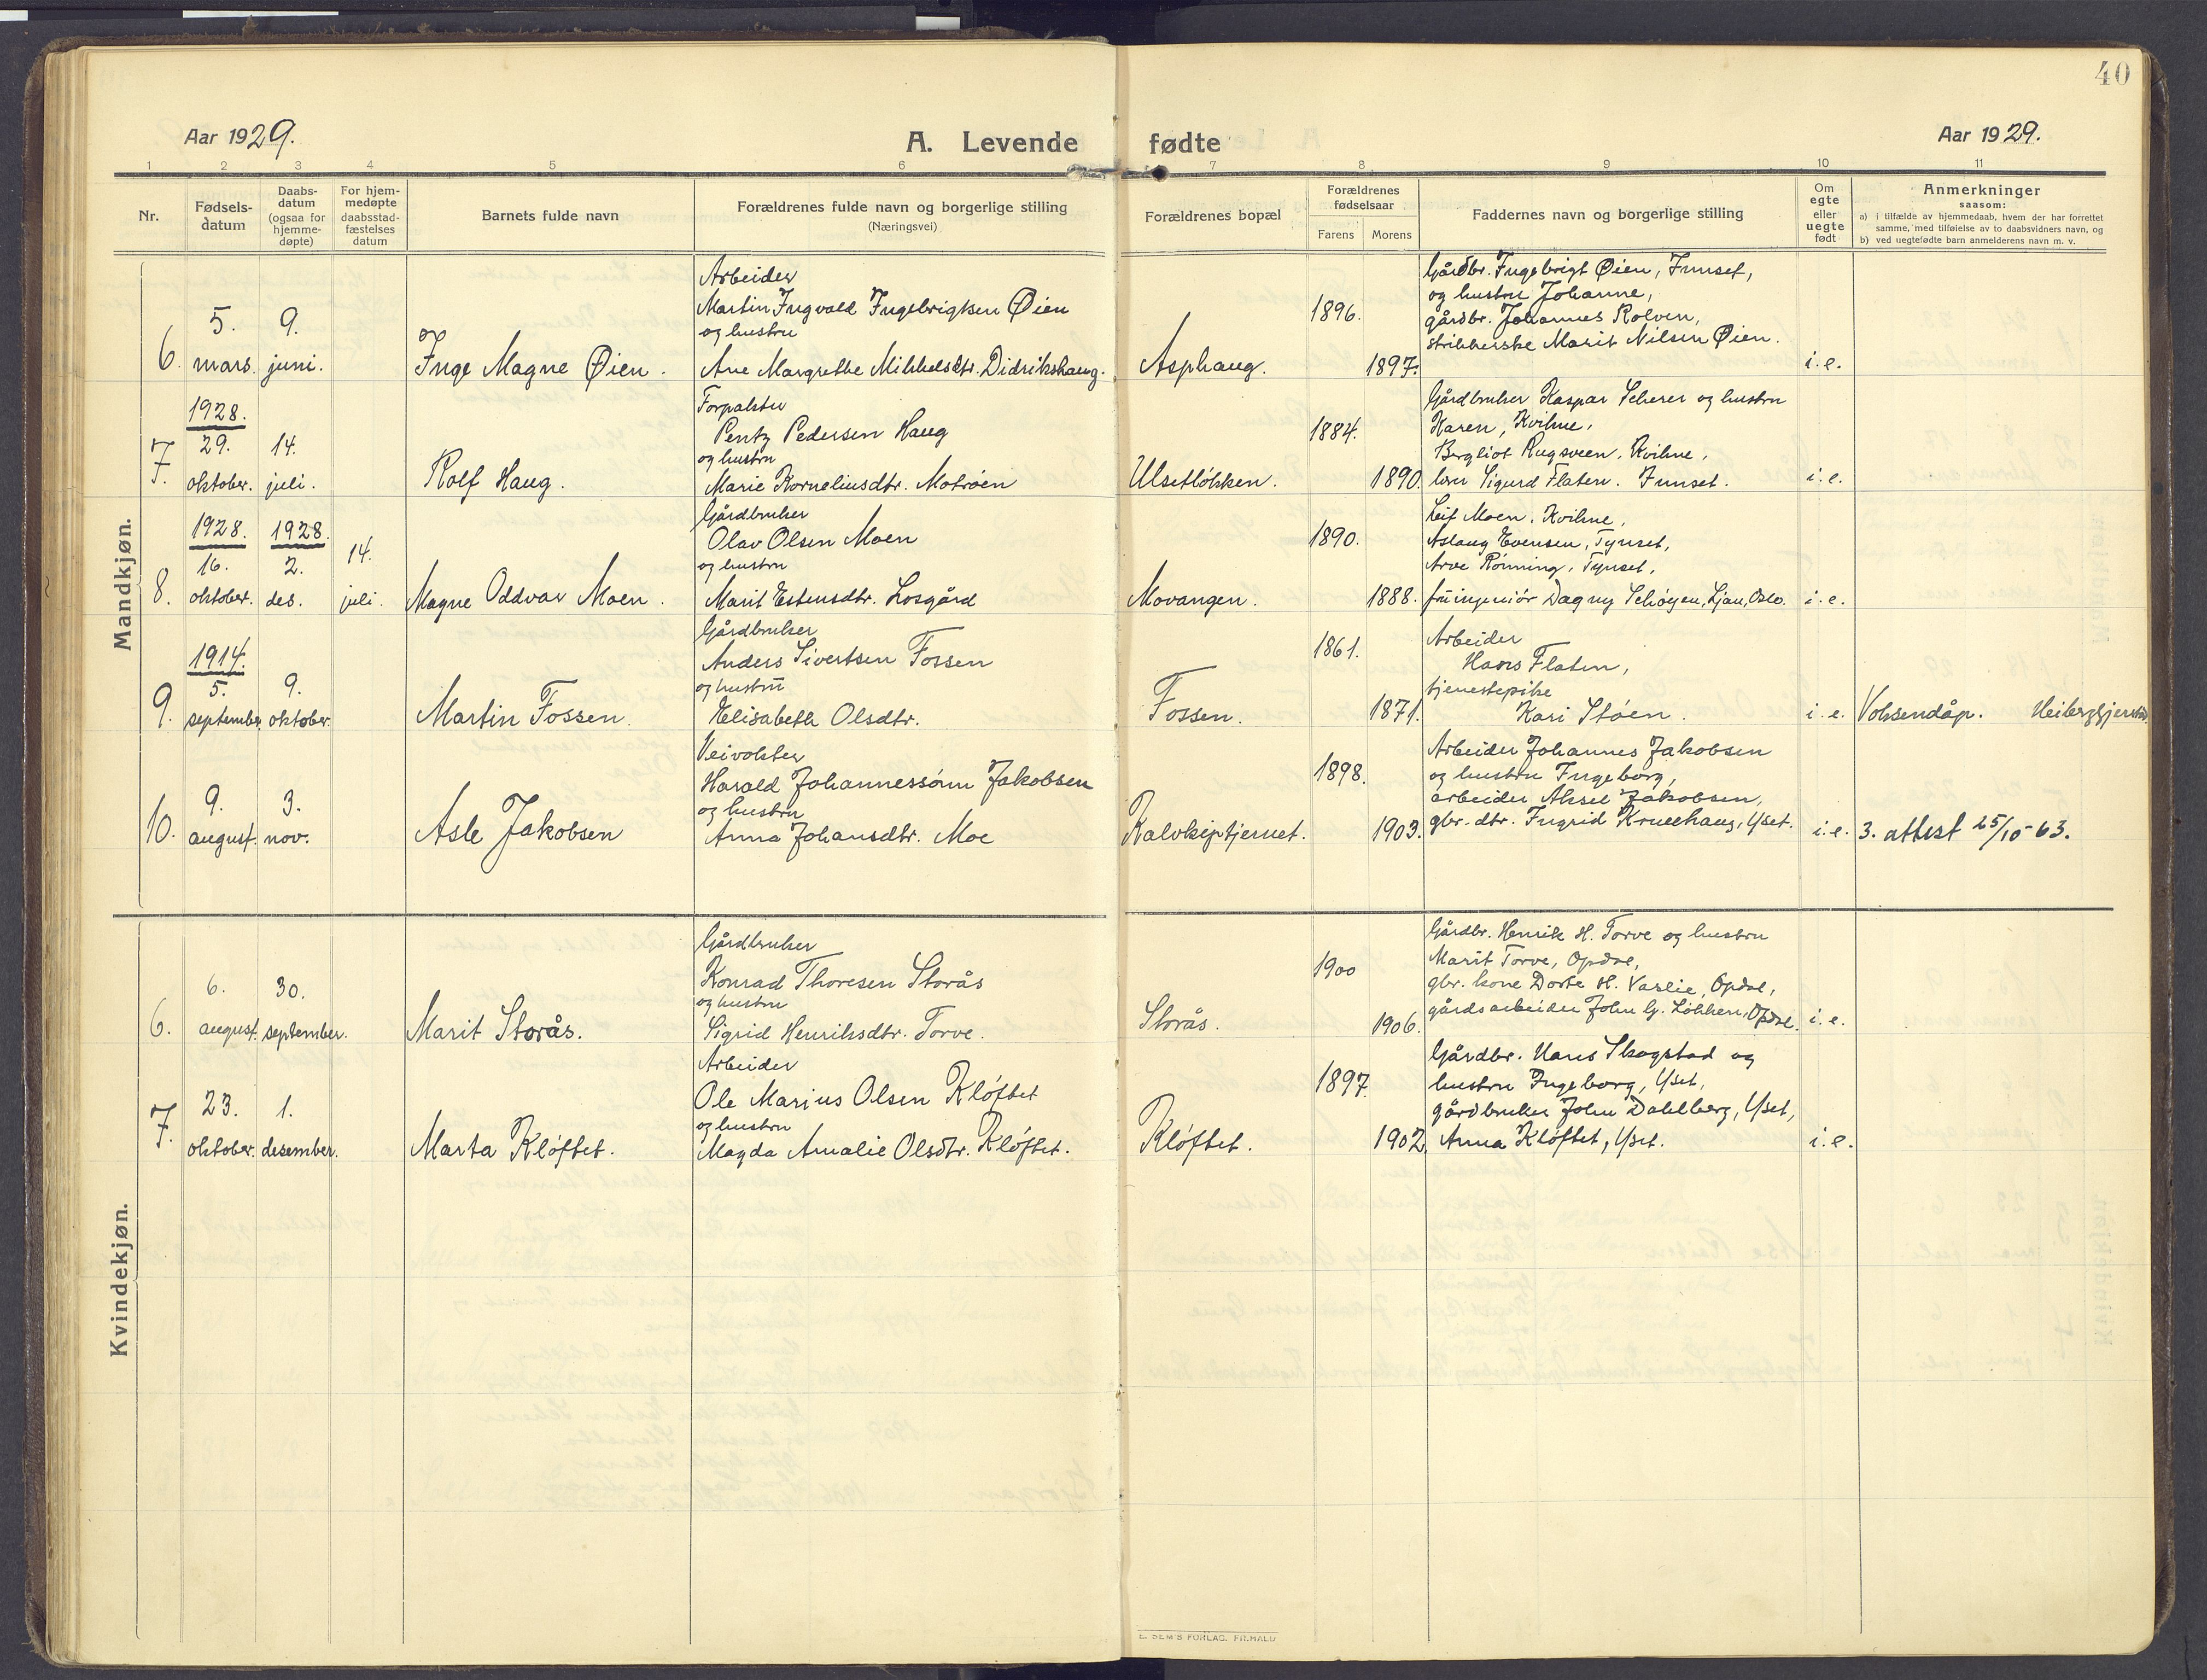 40
Aar 1929.
A. Levende fødte
Aar 1929.
1 2 3 4 5 6 7 8 9 10 11
Nr.
Fødsels-
datum
Daabs-
datum
(ogsaa for
hjemme-
døpte)
For hjem-
medøpte
daabsstad-
fæstelses
datum
Barnets fulde navn
Forældrenes fulde navn og borgerlige stilling
(Næringsvei)
Forældrenes bopæl
Forældrenes
fødselsaar
Farens Morens
Faddernes navn og borgerlige stilling
Om
egte
eller
uegte
født
Anmerkninger
saasom:
a) i tilfælde av hjemmedaab, hvem der har forrettet
samme, med tilføielse av to daabsvidners navn, og
b) ved uegtefødte barn anmelderens navn m. v.
Mandkjøn.
6.
5.
mars.
9.
juni.
Inge Magne Øien.
Arbeider
Martin Ingvald Ingebrigtsen Øien
og hustru
Ane Margrethe Mikkelsdtr. Didrikshaug.
Asphaug.
1896.
1897.
Gårdbr. Ingebrigt Øien, Innset,
og hustru Johanne,
gårdbr. Johannes Rolven,
strikkerske Marit Nilsen Øien.
i. e.
7.
1928.
29.
oktober.
14.
juli.
Rolf Haug.
Forpakter
Pentz Pedersen Haug
og hustru
Marie Korneliusdtr. Motrøen
Ulsetløkken.
1884.
1890.
Gårdbruker Kaspar Scherer og hustru
Karen, Kvikne,
Bergliot Rugsveen, Kvikne,
Sigurd Flaten. Innset.
i. e.
8.
1928.
16.
oktober.
1928.
2.
des.
14.
juli.
Magne Oddvar Moen.
Gårdbruker
Olav Olsen Moen
og hustru
Marit Estensdtr. Losgård
Movangen.
1890.
1888.
Leif Moen, Kvikne,
Aslaug Evensen, Tynset,
Arve Rønning, Tynset,
fru ingeniør Dagny Schøyen, Ljan, Oslo.
i. e.
9.
1914.
5.
september.
9.
oktober.
Martin Fossen.
Gårdbruker
Anders Sivertsen Fossen
og hustru
Elisabeth Olsdtr.
Fossen.
1861.
1871.
Arbeider
Hans Flaten,
tjenestepike
Kari Støen.
i. e.
Voksendåp.
10.
9.
august.
3.
nov.
Asle Jakobsen
Veivokter
Harald Johannessønn Jakobsen
og hustru
Anna Johansdtr. Moe
Kalvkiptjernet.
1898.
1903.
Arbeider Johannes Jakobsen
og hustru Ingeborg,
arbeider Aksel Jakobsen,
gbr. dtr. Ingrid Kruehaug, Yset.
i. e.
3. attest 25/10-63.
Kvindekjøn.
6.
6.
august.
30.
september.
Marit Storås.
Gårdbruker
Konrad Thoresen Storås
og hustru
Sigrid Henriksdtr. Torve.
Storås.
1900
1906.
Gårdbr. Henrik H. Torve og hustru
Marit Torve, Opdal,
gbr. kone Dorte H. Vaslie, Opdal,
gårdsarbeider John G. Løkken, Opdal.
i. e.
7.
23.
oktober.
1.
desember.
Marta Kløftet.
Arbeider
Ole Marius Olsen Kløftet
og hustru
Magda Amalie Olsdtr. Kløftet.
Kløftet.
1897.
1902.
Gårdbr. Hans Skogstad og
hustru Ingeborg, Yset,
gårdbruker John Dahlberg, Yset,
Anna Kløftet, Yset.
i. e.
E. SEM'S FORLAG. FR.HALD